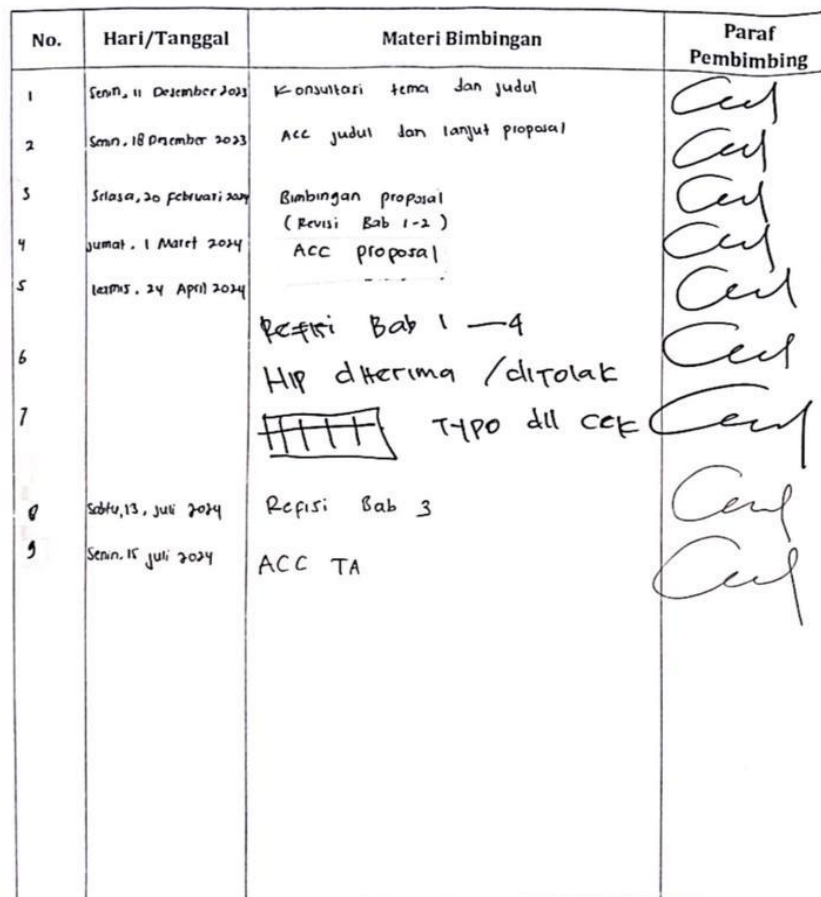 No. Hari/Tanggal Materi Bimbingan Paraf Pembimbing
1 Senin, 11 Desember 2023 Konsultasi tema dan judul
2 Senin, 18 Desember 2023 Acc judul dan lanjut proposal
3 Selasa, 20 Februari 2024 Bimbingan proposal
(Revisi Bab 1-2)
4 Jumat, 1 Maret 2024 ACC proposal
5 24 April 2024
Refisi Bab 1 — 4
6 HIP diterima / ditolak
7 TYPO dll cek
8 Sabtu, 13, Juli 2024 Refisi Bab 3
9 Senin, 15 Juli 2024 ACC TA